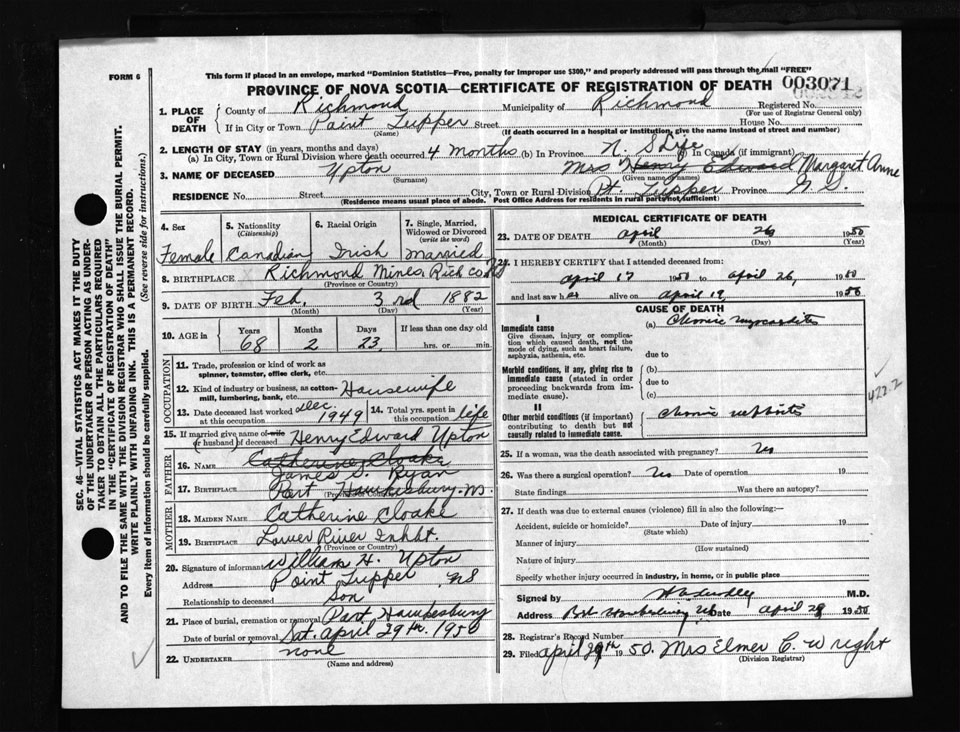 FORM 6
This form if placed in an envelope, marked "Dominion Statistics—Free, penalty for improper use $300," and properly addressed will pass through the mail "FREE"
PROVINCE OF NOVA SCOTIA—CERTIFICATE OF REGISTRATION OF DEATH 003071
1. PLACE OF DEATH County of Richmond Municipality of Richmond Registered No.
(For use of Registrar General only)
If in City or Town Point Tupper Street House No.
(Name) (If death occurred in a hospital or institution, give the name instead of street and number)
2. LENGTH OF STAY (in years, months and days)
(a) In City, Town or Rural Division where death occurred 4 months (b) In Province N. S Life (c) In Canada (if immigrant)
3. NAME OF DECEASED Upton Mrs Henry Edward Margaret Anne
(Surname) (Given name or names)
RESIDENCE No. Street City, Town or Rural Division Pt. Tupper Province N. S.
(Residence means usual place of abode. Post Office Address for residents in rural parts not sufficient)
4. Sex 5. Nationality (Citizenship) 6. Racial Origin 7. Single, Married, Widowed or Divorced (write the word)
Female Canadian Irish Married
8. BIRTHPLACE Richmond Mines, Rich Co NS
(Province or Country)
9. DATE OF BIRTH Feb. 3rd 1882
(Month) (Day) (Year)
10. AGE in Years Months Days If less than one day old
68 2 23 hrs. or min.
OCCUPATION
11. Trade, profession or kind of work as spinner, teamster, office clerk, etc.
12. Kind of industry or business, as cotton-mill, lumbering, bank, etc. Housewife
13. Date deceased last worked at this occupation Dec. 1949 14. Total yrs. spent in this occupation life
15. If married give name of wife (or husband) of deceased Henry Edward Upton
FATHER
16. NAME Catherine Cloake
James S. Ryan
17. BIRTHPLACE Port Hawkesbury. NS.
(Province or Country)
MOTHER
18. MAIDEN NAME Catherine Cloake
19. BIRTHPLACE Lower River Inhbt.
(Province or Country)
20. Signature of informant William H. Upton
Address Point Tupper NS
Relationship to deceased Son
21. Place of burial, cremation or removal Port Hawkesbury
Date of burial or removal Sat. April 29th. 1950
22. UNDERTAKER none
(Name and address)
MEDICAL CERTIFICATE OF DEATH
23. DATE OF DEATH April 26 1950
(Month) (Day) (Year)
24. I HEREBY CERTIFY that I attended deceased from:
April 17 1950 to April 26, 1950
and last saw her alive on April 19 1950
CAUSE OF DEATH
I
Immediate cause (a) Chronic myocarditis
Give disease, injury or complication which caused death, not the mode of dying, such as heart failure, asphyxia, asthenia, etc.
due to
Morbid conditions, if any, giving rise to immediate cause (stated in order proceeding backwards from immediate cause).
(b)
due to
(c)
422.2
II
Other morbid conditions (if important) contributing to death but not causally related to immediate cause. Chronic nephritis
25. If a woman, was the death associated with pregnancy? No
26. Was there a surgical operation? No Date of operation 19
State findings Was there an autopsy?
27. If death was due to external causes (violence) fill in also the following:
Accident, suicide or homicide? Date of injury 19
(State which)
Manner of injury
(How sustained)
Nature of injury
Specify whether injury occurred in industry, in home, or in public place
Signed by M.D.
Address Pt. Hawkesbury NS Date April 29 1950
28. Registrar's Record Number
29. Filed April 29th 1950. Mrs Elmer C. Wright
(Division Registrar)
SEC. 46—VITAL STATISTICS ACT MAKES IT THE DUTY
OF THE UNDERTAKER OR PERSON ACTING AS UNDER-
TAKER TO OBTAIN ALL THE PARTICULARS REQUIRED
IN THE "CERTIFICATE OF REGISTRATION OF DEATH"
AND TO FILE THE SAME WITH THE DIVISION REGISTRAR WHO SHALL ISSUE THE BURIAL PERMIT.
WRITE PLAINLY WITH UNFADING INK. THIS IS A PERMANENT RECORD.
Every item of information should be carefully supplied. (See reverse side for instructions.)